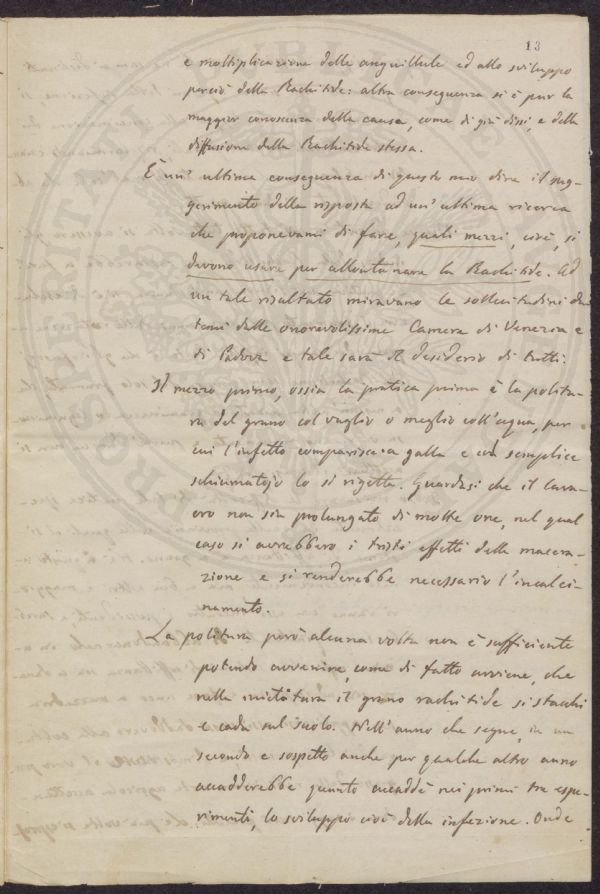 13
e moltiplicazione delle anguillule ed allo sviluppo
perciò della Rachitide: altra conseguenza si è pur la
maggior conoscenza della causa, come di già dissi, e della
diffusione della Rachitide stessa.
È un' ultima conseguenza di questo mio dire il sug-
gerimento della risposta ad un' ultima ricerca
che proponevami di fare, quali mezzi, cioè, si
devono usare per allontanare la Rachitide. Ad
un tale risultato miravano le sollecitudini da
temi delle onorevolissime Camera di Venezia e
di Padova e tale sarà il desiderio di tutti.
Il mezzo primo, ossia la pratica prima è la politu-
ra del grano col vaglio o meglio coll'acqua, per
cui l'infetto comparisce a galla e con semplice
schiumatojo lo si rigetta. Guardasi che il lava-
cro non sia prolungato di molte ore, nel qual
caso si avrebbero i tristi effetti della macera-
zione e si renderebbe necessario l'incalci-
namento.
La politura però alcuna volta non è sufficiente
potendo avvenire, come di fatto avviene, che
nella mietitura il grano rachitide si stacchi
e cada sul suolo. Nell' anno che segue, in un
secondo e sospetto anche per qualche altro anno
accadderebbe quanto accadde nei primi tre espe-
rimenti, lo sviluppo cioè della infezione. Onde